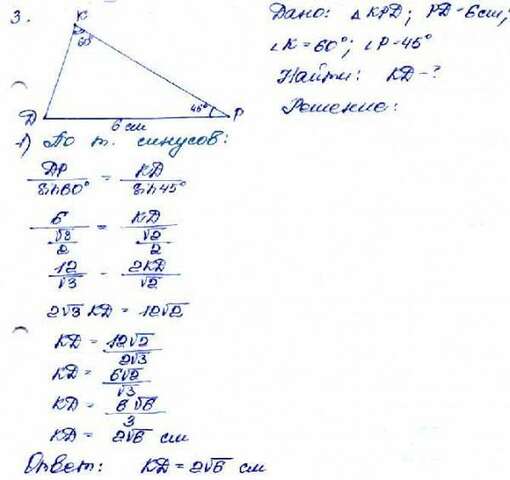 3.
K
60°
45°
D
P
6 см
Дано: △ KPD; PD-6см;
∠K=60°; ∠P-45°
Найти: KD-?
Решение:
1) По т. синусов:
DP/sin60° = KD/sin45°
6/(√3/2) = KD/(√2/2)
12/√3 - 2KD/√2
2√3 KD = 12√2
KD = 12√2/2√3
KD = 6√2/√3
KD = 6√6/3
KD = 2√6 см
Ответ: KD=2√6 см